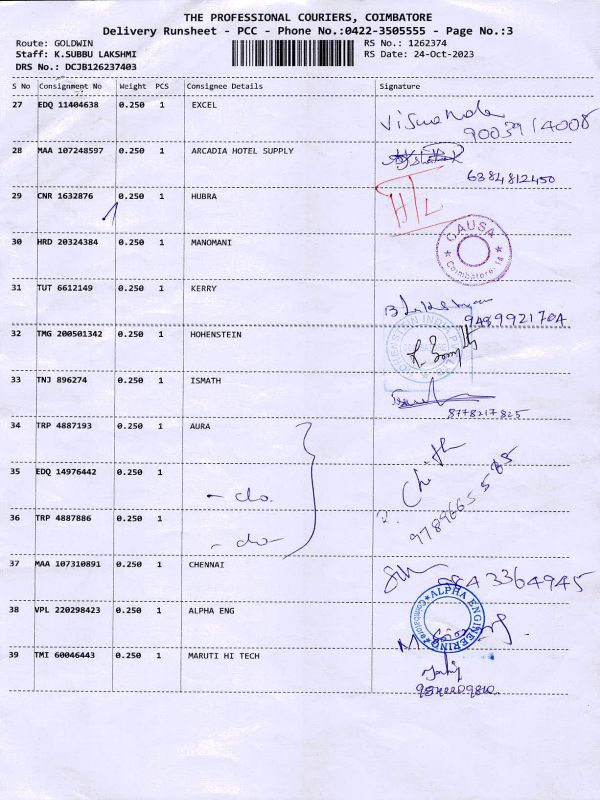 THE PROFESSIONAL COURIERS, COIMBATORE
Delivery Runsheet - PCC - Phone No.:0422-3505555 - Page No.:3
Route: GOLDWIN RS No.: 1262374
Staff: K.SUBBU LAKSHMI RS Date: 24-Oct-2023
DRS No.: DCJB126237403
S No Consignment No Weight PCS Consignee Details Signature
27 EDQ 11404638 0.250 1 EXCEL
9003914008
28 MAA 107248597 0.250 1 ARCADIA HOTEL SUPPLY
6384812450
29 CNR 1632876 0.250 1 HUBRA H/L
30 HRD 20324384 0.250 1 MANOMANI GAUSA
Coimbatore. 14
31 TUT 6612149 0.250 1 KERRY
32 TMG 200501342 0.250 1 HOHENSTEIN
33 TNJ 896274 0.250 1 ISMATH
8778217825
34 TRP 4887193 0.250 1 AURA
35 EDQ 14976442 0.250 1
- do.
9789665585
36 TRP 4887886 0.250 1
- do -
37 MAA 107310891 0.250 1 CHENNAI
9843364945
38 VPL 220298423 0.250 1 ALPHA ENG ALPHA ENGINEERING Coimbatore
39 TMI 60046443 0.250 1 MARUTI HI TECH